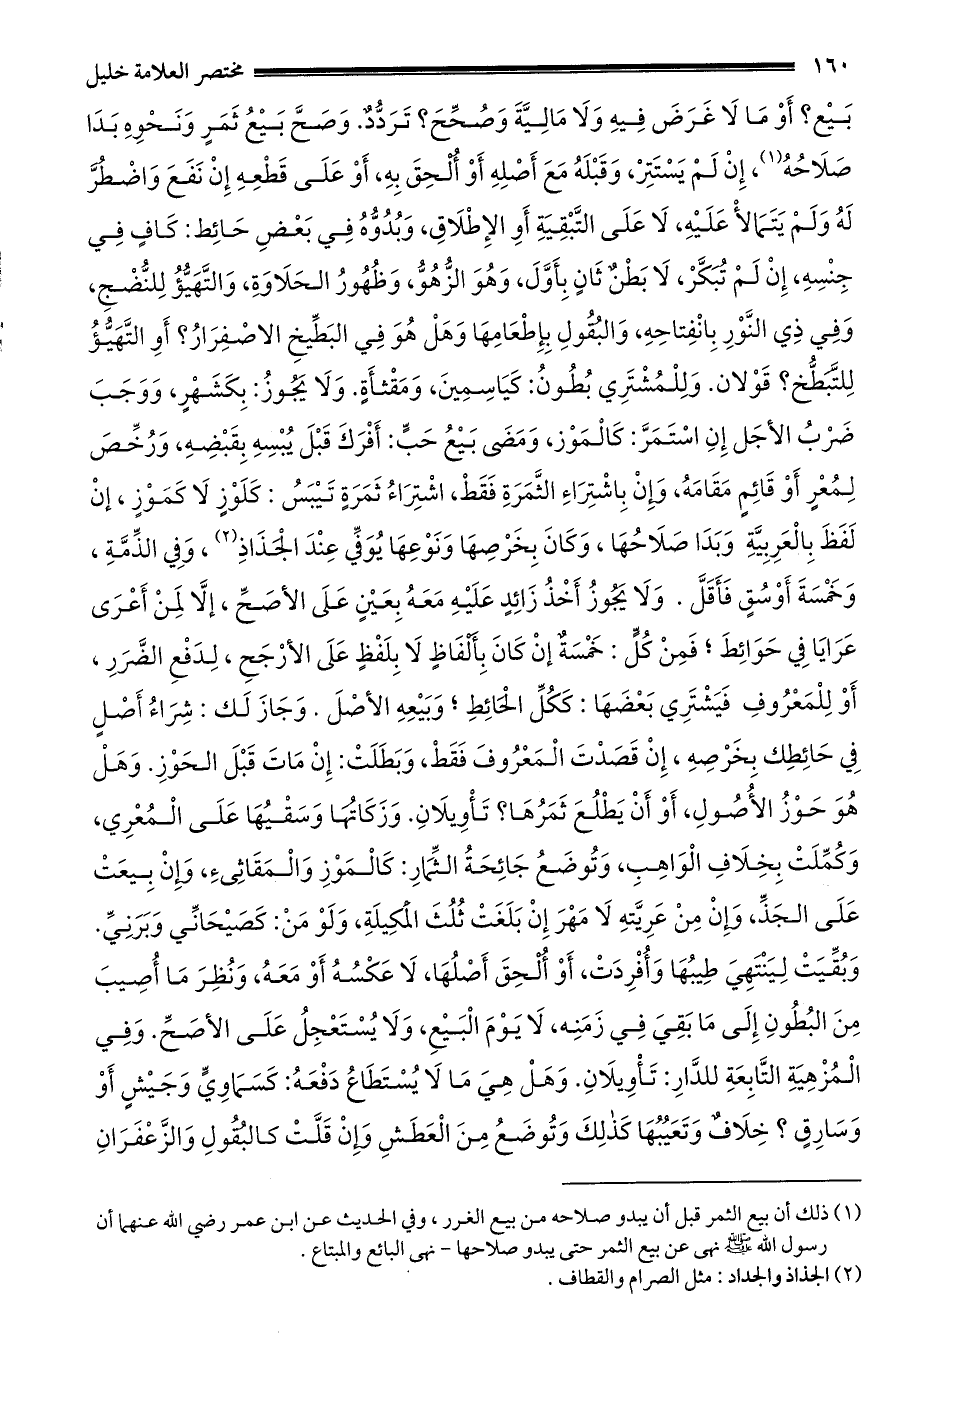 ١٦٠ مختصر العلامة خليل
بَيْعٍ؟ أَوْ مَا لَا غَرَضَ فِيهِ وَلَا مَالِيَّةَ وَصُحِّحَ؟ تَرَدُّدٌ. وَصَحَّ بَيْعُ ثَمَرٍ وَنَحْوِهِ بَدَا
صَلَاحُهُ(١)، إِنْ لَمْ يَسْتَتِرْ، وَقَبْلَهُ مَعَ أَصْلِهِ أَوْ أُلْحِقَ بِهِ، أَوْ عَلَى قَطْعِهِ إِنْ نَفَعَ وَاضْطُرَّ
لَهُ وَلَمْ يَتَمَالأْ عَلَيْهِ، لَا عَلَى التَّبْقِيَةِ أَوِ الإِطْلَاقِ، وَبُدُوُّهُ فِي بَعْضِ حَائِطٍ: كَافٍ فِي
جِنْسِهِ، إِنْ لَمْ تُبَكَّرْ، لَا بَطْنٌ ثَانٍ بِأَوَّلَ، وَهُوَ الزَّهُوُّ، وَظُهُورُ الحَلَاوَةِ، وَالتَّهَيُّؤُ لِلنُّضْجِ،
وَفِي ذِي النَّوْرِ بِانْفِتَاحِهِ، وَالبُقُولِ بِإِطْعَامِهَا وَهَلْ هُوَ فِي البَطِّيخِ الاصْفِرَارُ؟ أَوِ التَّهَيُّؤُ
لِلتَّبَطُّخِ؟ قَوْلان. وَلِلْمُشْتَرِي بُطُونُ: كَيَاسِمِينَ، وَمَقْثَأَةٍ. وَلَا يَجُوزُ: بِكَشَهْرٍ، وَوَجَبَ
ضَرْبُ الأَجَلِ إِنِ اسْتَمَرَّ: كَالْمَوْزِ، وَمَضَى بَيْعُ حَبٍّ: أَفْرَكَ قَبْلَ يُبْسِهِ بِقَبْضِهِ، وَرُخِّصَ
لِمُعْرٍ أَوْ قَائِمٍ مَقَامَهُ، وَإِنْ بِاشْتِرَاءِ الثَّمَرَةِ فَقَطْ، اشْتِرَاءُ ثَمَرَةٍ تَيْبَسُ : كَلَوْزٍ لَا كَمَوْزٍ ، إِنْ
لَفَظَ بِالْعَرِيَّةِ وَبَدَا صَلَاحُهَا ، وَكَانَ بِخَرْصِهَا وَنَوْعِهَا يُوَفَّى عِنْدَ الجَذَاذِ(٢) ، وَفِي الذِّمَّةِ ،
وَخَمْسَةَ أَوْسُقٍ فَأَقَلَّ . وَلَا يَجُوزُ أَخْذُ زَائِدٍ عَلَيْهِ مَعَهُ بِعَيْنٍ عَلَى الأَصَحِّ ، إِلَّا لِمَنْ أَعْرَى
عَرَايَا فِي حَوَائِطَ ؛ فَمِنْ كُلٍّ : خَمْسَةٌ إِنْ كَانَ بِأَلْفَاظٍ لَا بِلَفْظٍ عَلَى الأَرْجَحِ ، لِدَفْعِ الضَّرَرِ ،
أَوْ لِلْمَعْرُوفِ فَيَشْتَرِي بَعْضَهَا : كَكُلِّ الحَائِطِ ؛ وَبَيْعِهِ الأَصْلَ . وَجَازَ لَك : شِرَاءُ أَصْلٍ
فِي حَائِطِك بِخَرْصِهِ ، إِنْ قَصَدْتَ الْمَعْرُوفَ فَقَطْ، وَبَطَلَتْ: إِنْ مَاتَ قَبْلَ الحَوْزِ. وَهَلْ
هُوَ حَوْزُ الأُصُولِ، أَوْ أَنْ يَطْلُعَ ثَمَرُهَا؟ تَأْوِيلَان. وَزَكَاتُهَا وَسَقْيُهَا عَلَى الْمُعْرِي،
وَكُمِّلَتْ بِخِلَافِ الْوَاهِبِ، وَتُوضَعُ جَائِحَةُ الثِّمَارِ: كَالْمَوْزِ وَالْمَقَاثِيءِ، وَإِنْ بِيعَتْ
عَلَى الجَذِّ، وَإِنْ مِنْ عَرِيَّتِهِ لَا مَهْرٍ إِنْ بَلَغَتْ ثُلُثَ المَكِيلَةِ، وَلَوْ مَنْ: كَصَيْحَانِيٍّ وَبَرْنِيٍّ.
وَبُقِّيَتْ لِيَنْتَهِيَ طِيبُهَا وَأُفْرِدَتْ، أَوْ أُلْحِقَ أَصْلُهَا، لَا عَكْسُهُ أَوْ مَعَهُ، وَنُظِرَ مَا أُصِيبَ
مِنَ البُطُونِ إِلَى مَا بَقِيَ فِي زَمَنِهِ، لَا يَوْمَ الْبَيْعِ، وَلَا يُسْتَعْجِلُ عَلَى الأَصَحِّ. وَفِي
الْمُزْهِيَةِ التَّابِعَةِ للدَّارِ: تَأْوِيلَان. وَهَلْ هِيَ مَا لَا يُسْتَطَاعُ دَفْعَهُ: كَسَمَاوِيٍّ وَجَيْشٍ أَوْ
وَسَارِقٍ ؟ خِلَافٌ وَتَعَيُّبُهَا كَذٰلِكَ وَتُوضَعُ مِنَ الْعَطَشِ وَإِنْ قَلَّتْ كالبُقُولِ وَالزَّعْفَرَانِ
(١) ذلك أن بيع الثمر قبل أن يبدو صلاحه من بيع الغرر ، وفي الحديث عن ابن عمر رضي الله عنهما أن
رسول الله ﷺ نهى عن بيع الثمر حتى يبدو صلاحها - نهى البائع والمبتاع .
(٢) الجذاذ والجداد : مثل الصرام والقطاف .